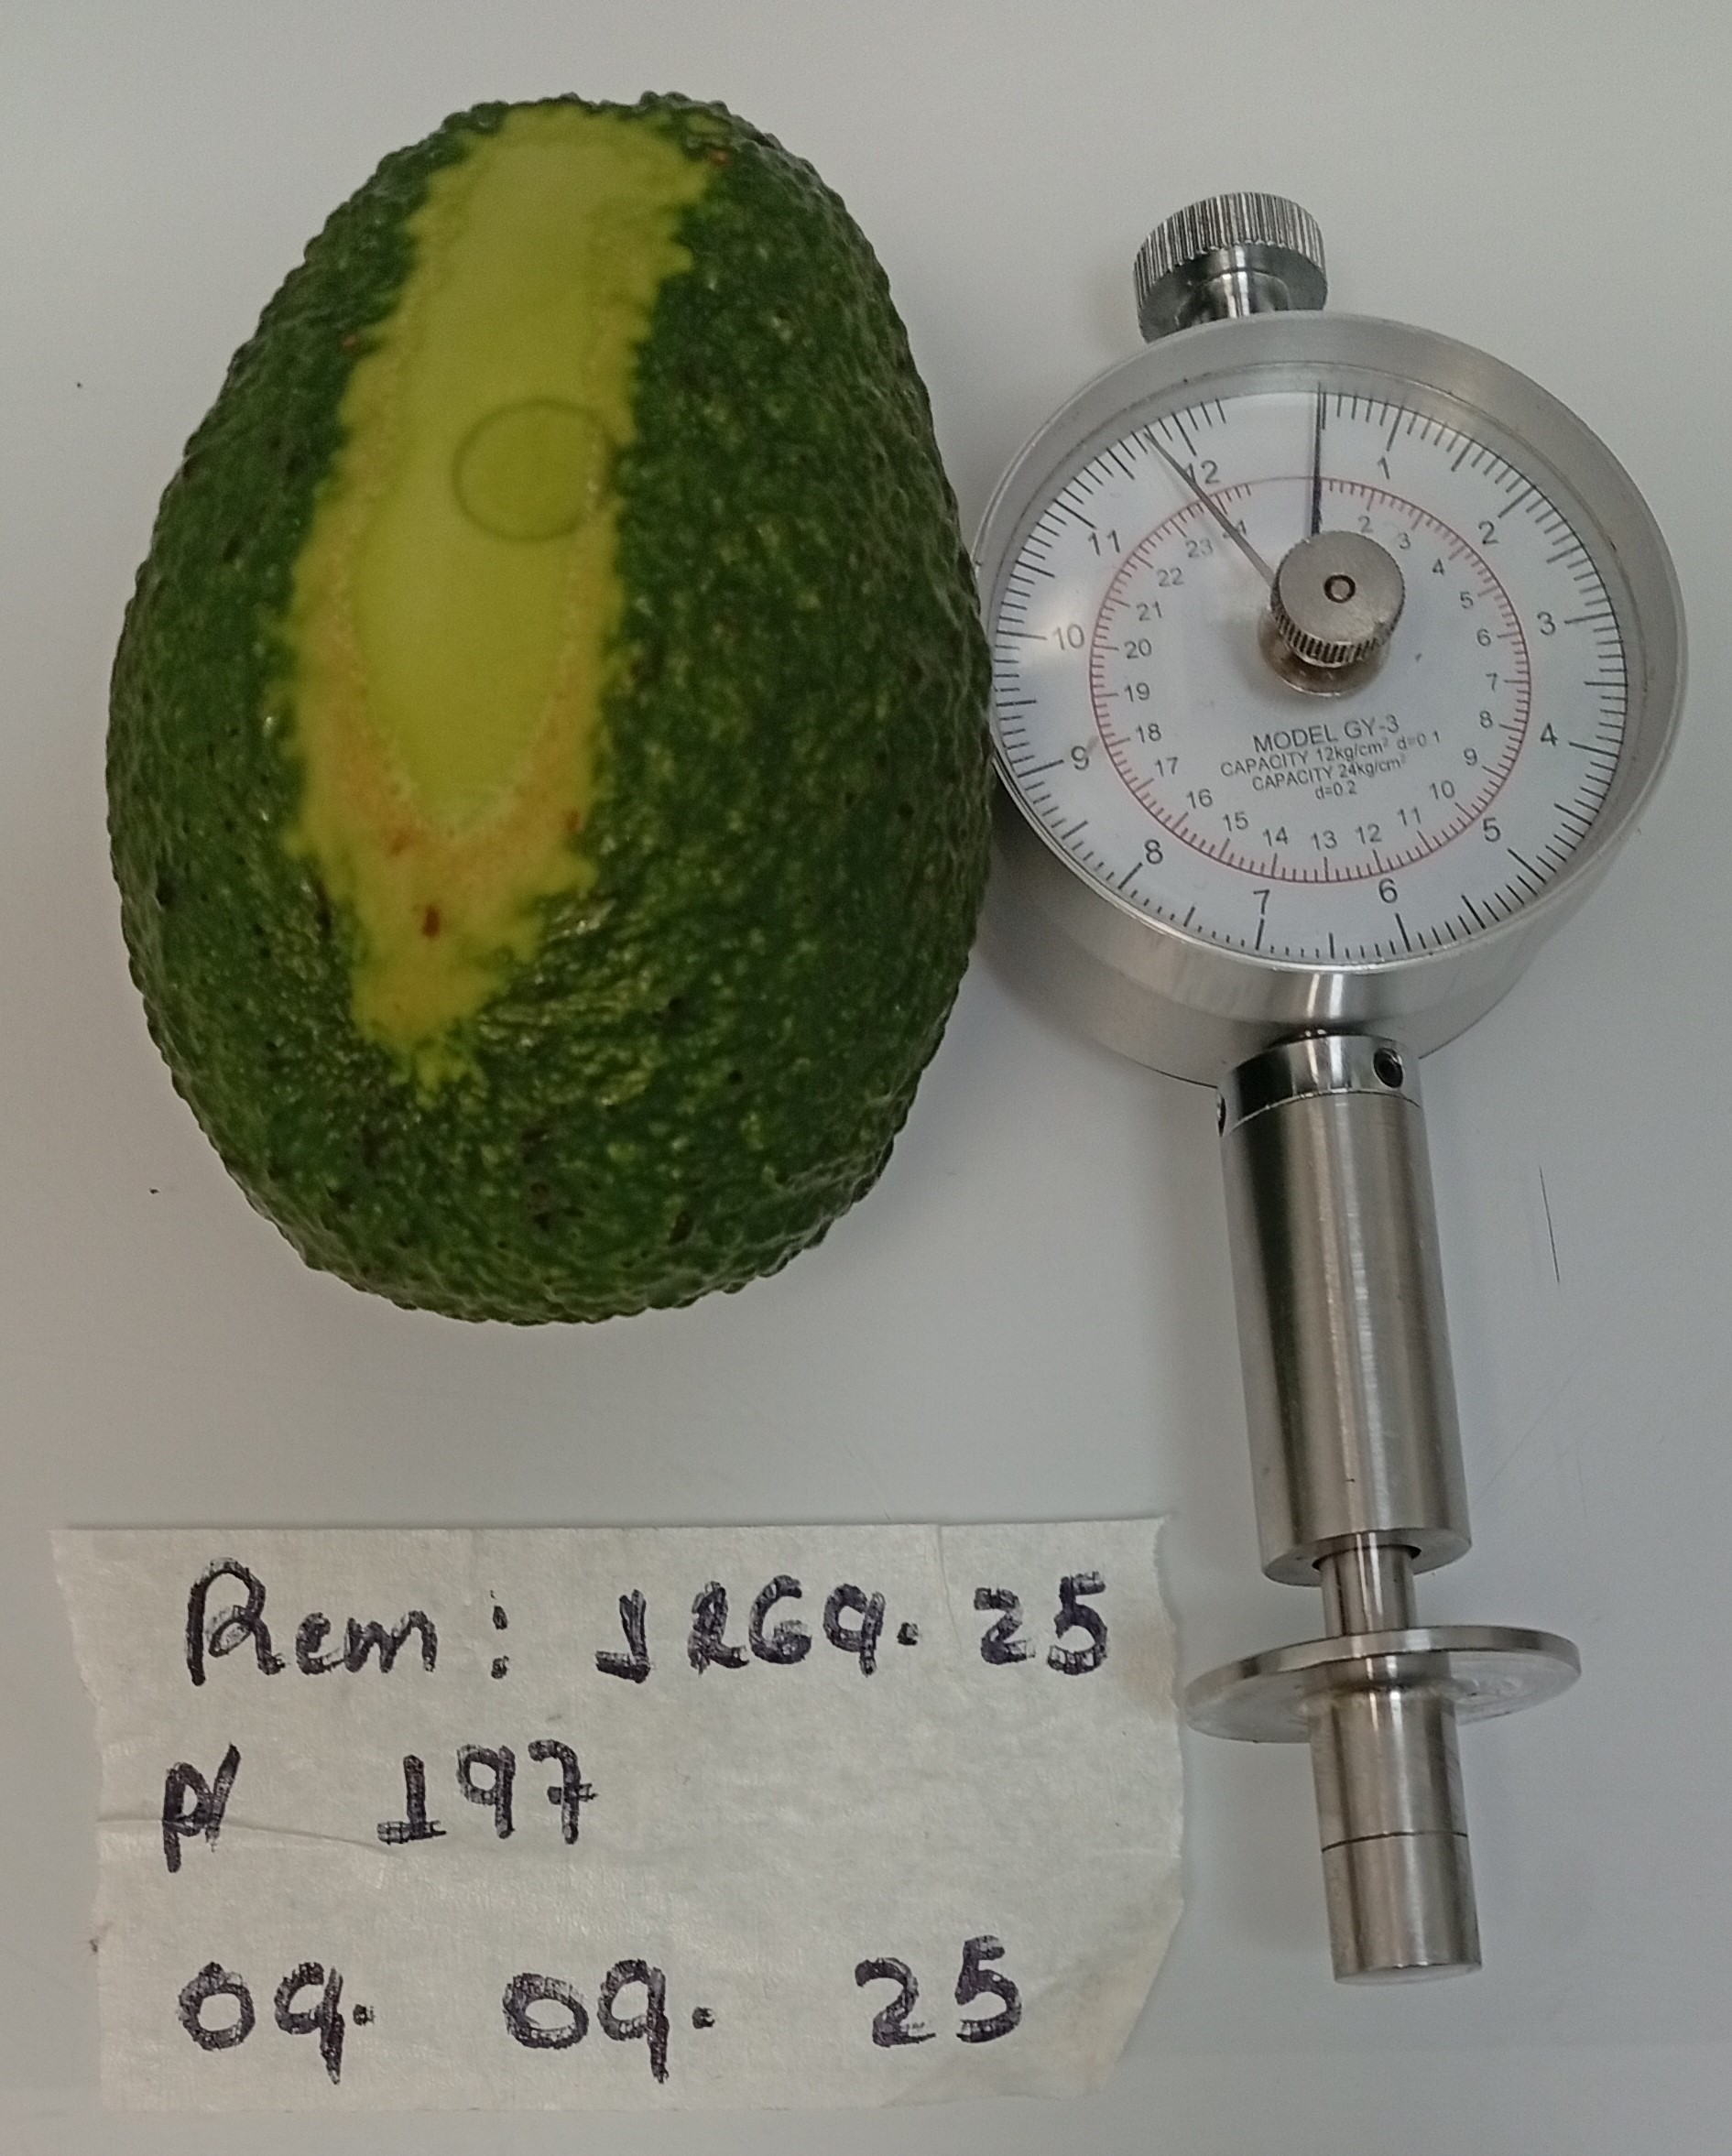 1
2
3
4
5
6
7
8
9
10
11
12
2
3
4
5
6
7
8
9
10
11
12
13
14
15
16
17
18
19
20
21
22
23
MODEL GY-3
CAPACITY 12kg/cm² d=0.1
CAPACITY 24kg/cm²
d=0.2
Rem: 1269.25
N 197
09. 09. 25